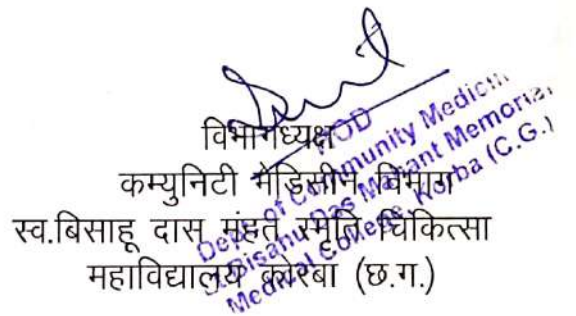 विभागध्यक्ष
कम्युनिटी मेडिसीन विभाग
स्व.बिसाहू दास मंहत स्मृति चिकित्सा
महाविद्यालय कोरबा (छ.ग.)
HOD
Deptt of Community Medicin
Bisahu Das Mahant Memorial
Medical College, Korba (C.G.)